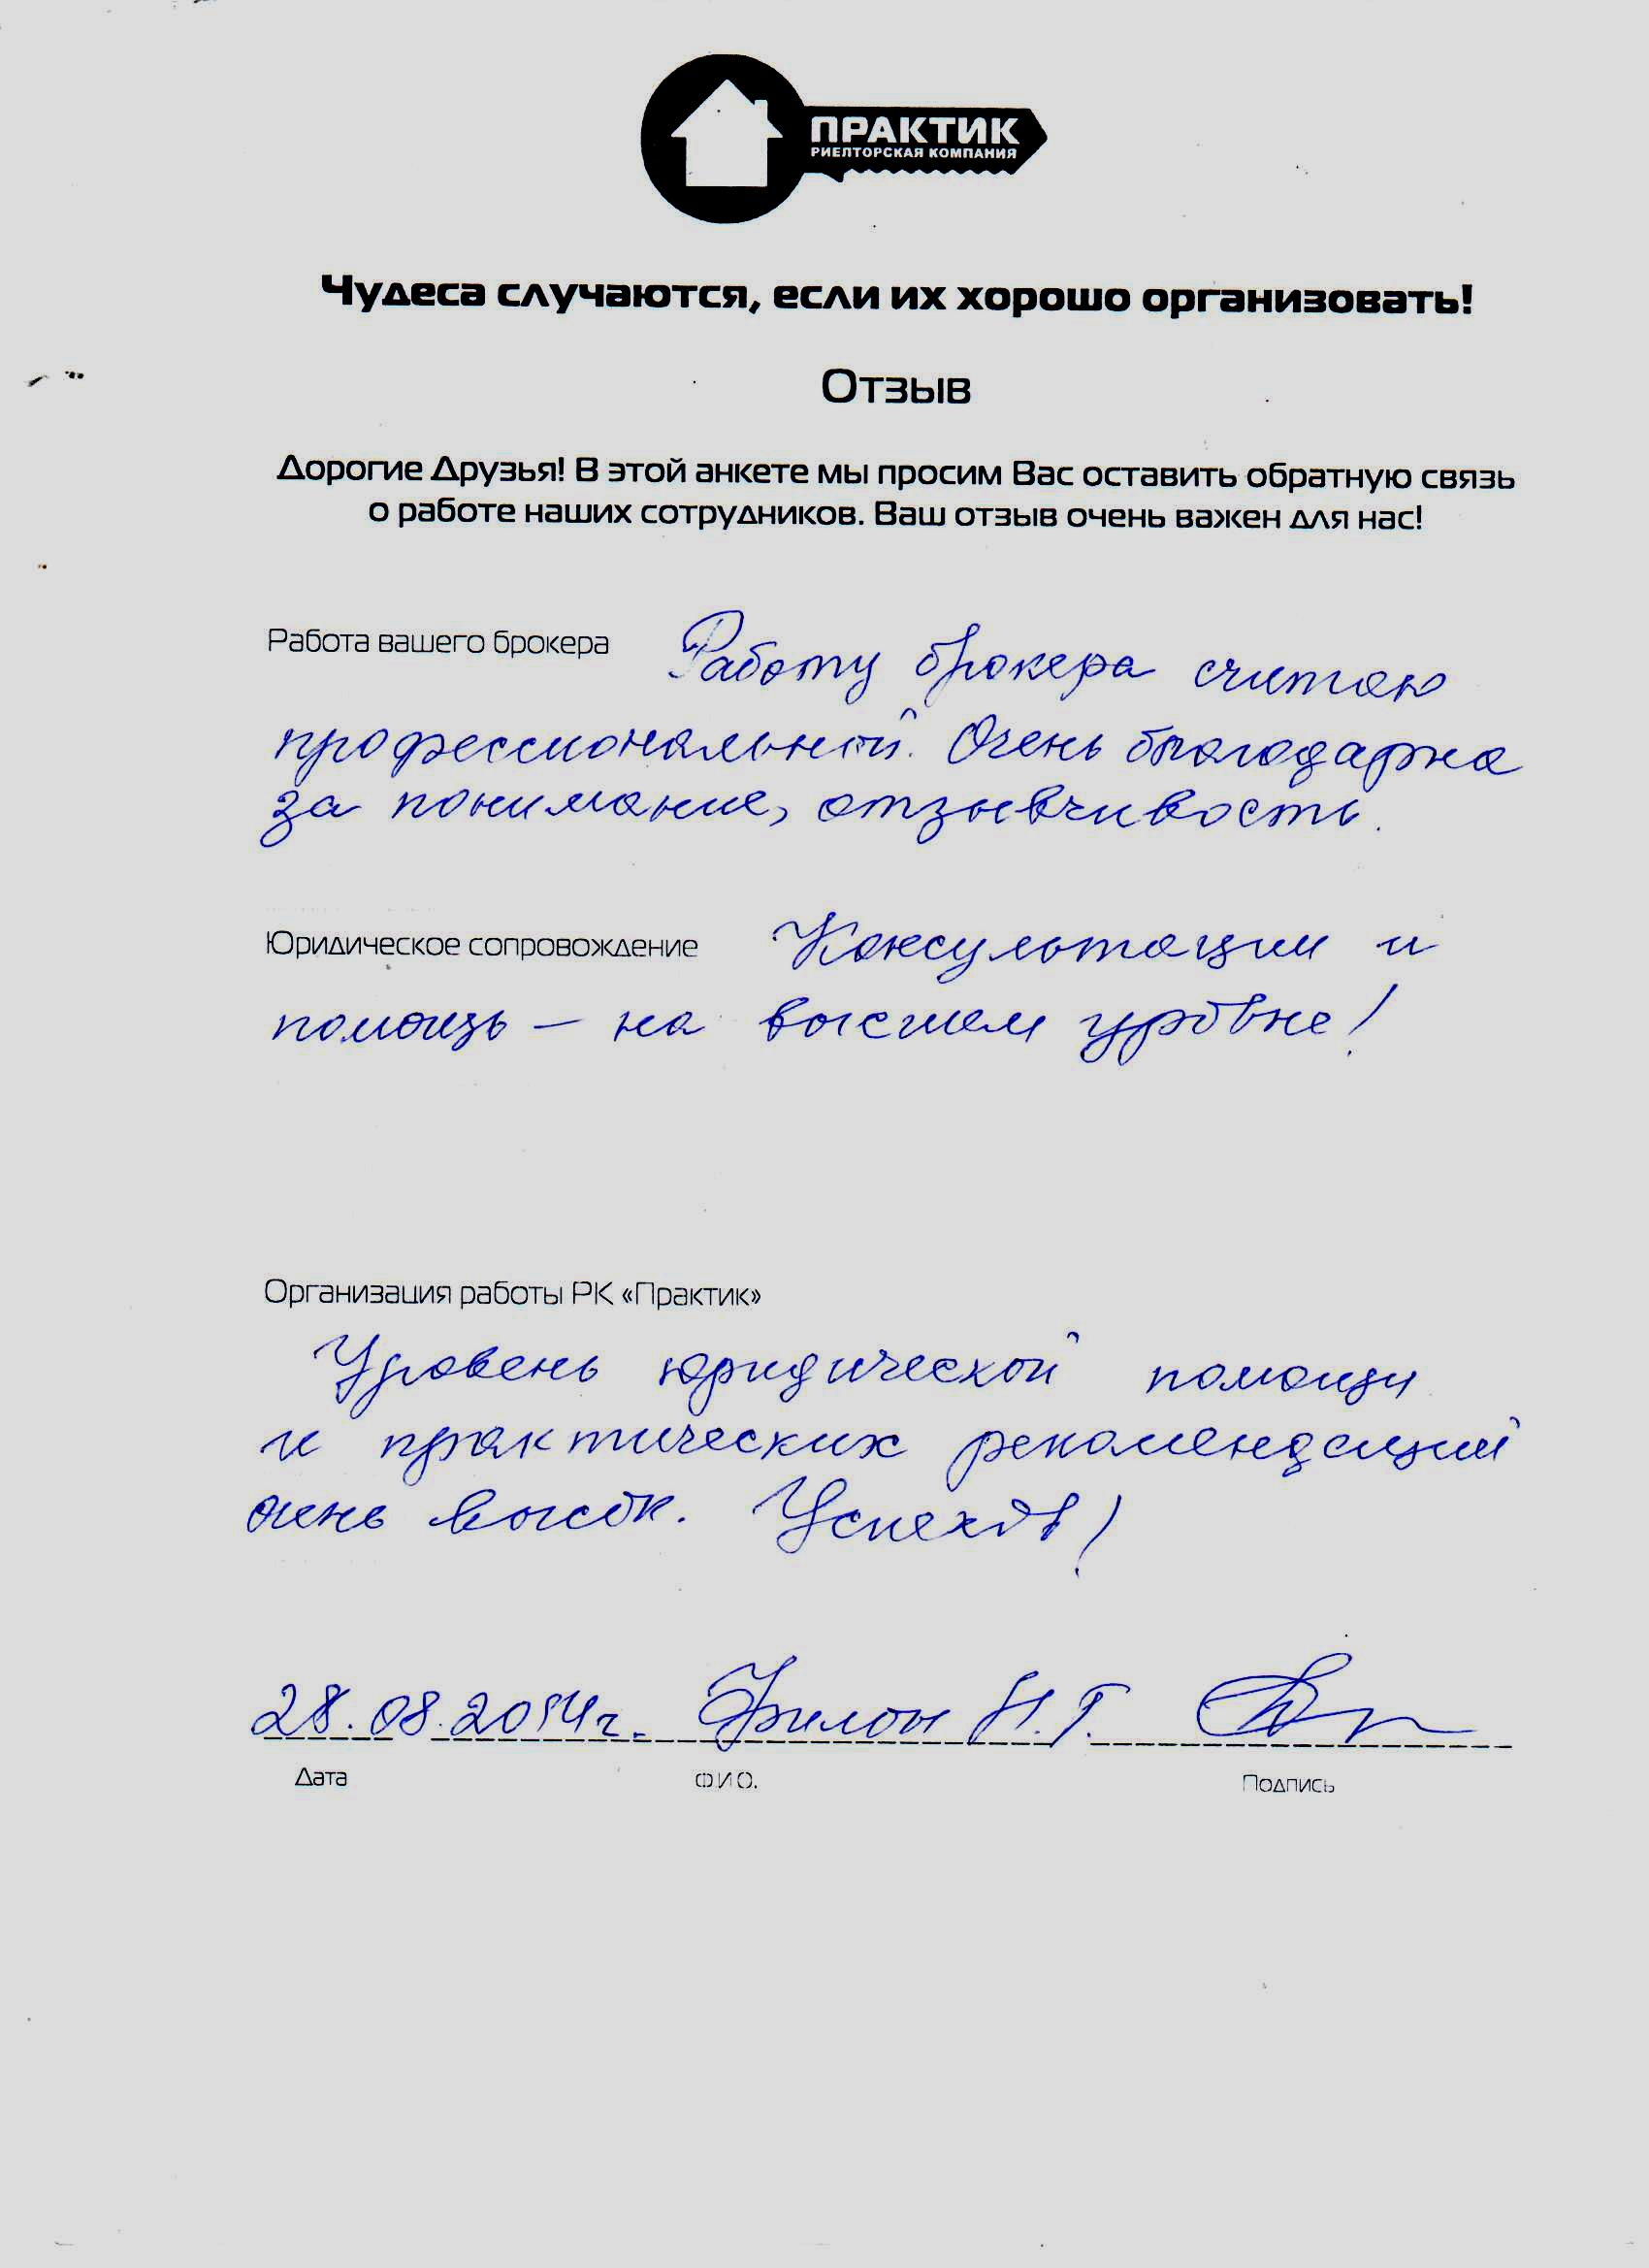 ПРАКТИК
РИЕЛТОРСКАЯ КОМПАНИЯ
Чудеса случаются, если их хорошо организовать!
Отзыв
Дорогие Друзья! В этой анкете мы просим Вас оставить обратную связь
о работе наших сотрудников. Ваш отзыв очень важен для нас!
Работа вашего брокера Работу брокера считаю
профессиональной. Очень благодарна
за понимание, отзывчивость.
Юридическое сопровождение Консультации и
помощь – на высшем уровне!
Организация работы РК «Практик»
Уровень юридической помощи
и практических рекомендаций
очень высок. Успехов!
28.08.2014г. Филон Н.Г.
Дата Ф.И.О. Подпись